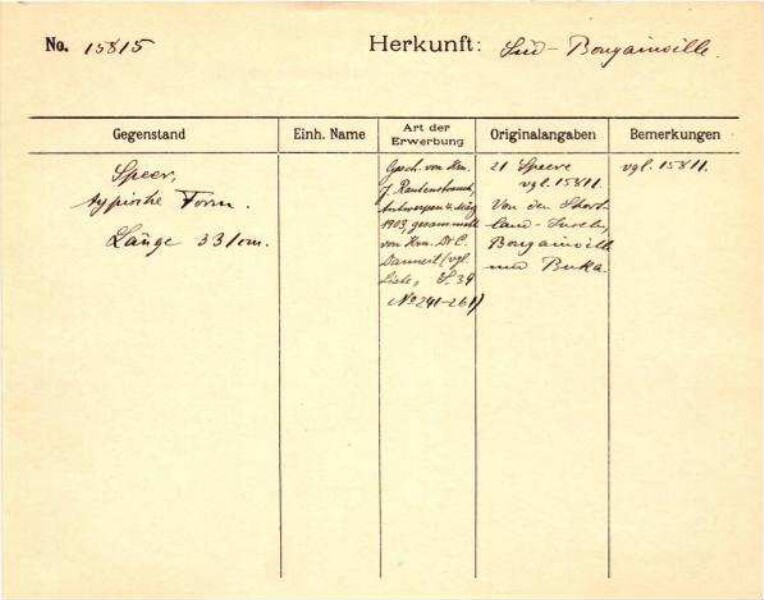 No. 15815
Herkunft: Süd-Bougainville.
Gegenstand
Einh. Name
Art der Erwerbung
Originalangaben
Bemerkungen
Speer,
typische Form.
Länge 331cm.
Gesch. von Hrn.
J. Rautenstrauch,
Antwerpen 4. März
1903, gesammelt
von Hrn. Dr C.
Dannert (vgl.
Liste, S. 39
No 241-261)
21 Speere
vgl. 15811.
Von den Short-
land-Inseln,
Bougainville
und Buka.
vgl. 15811.